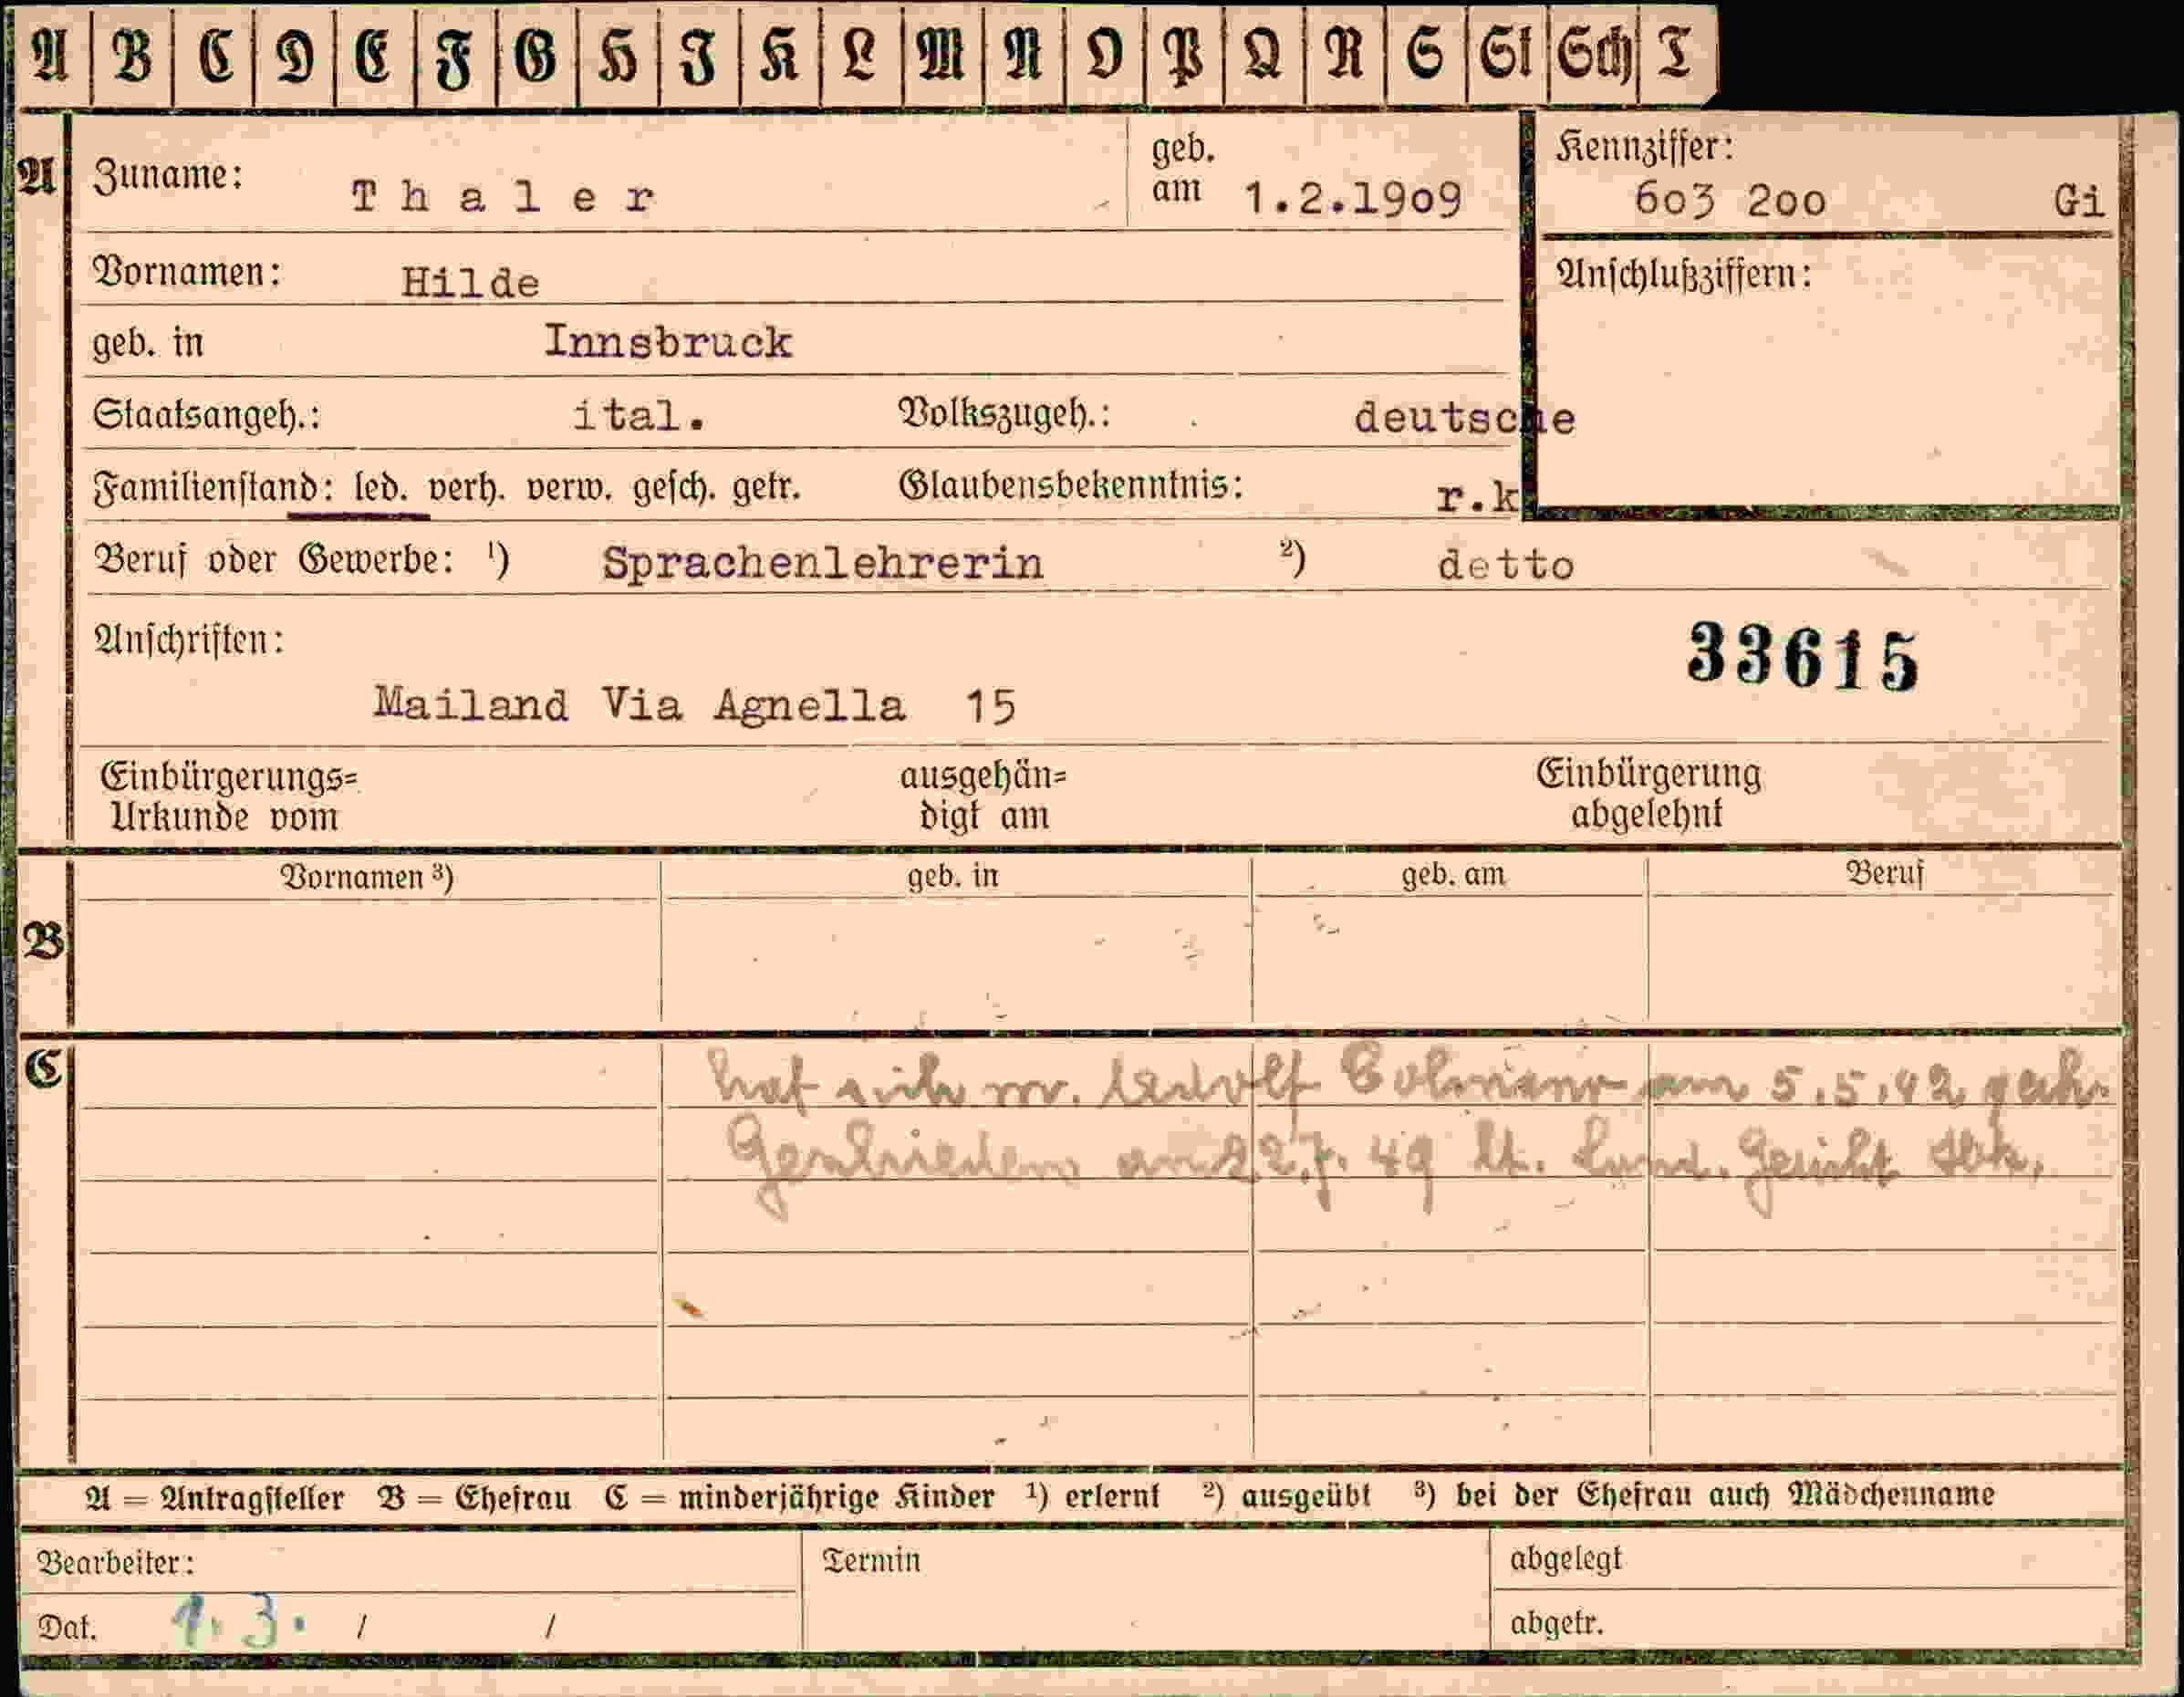 A B C D E F G H I K L M N O P Q R S St Sch T
A
Zuname: Thaler
geb. am 1.2.1909
Kennziffer:
603 200 Gi
Vornamen: Hilde
Anschlußziffern:
geb. in Innsbruck
Staatsangeh.: ital. Volkszugeh.: deutsche
Familienstand: led. verh. verw. gesch. getr. Glaubensbekenntnis: r.k
Beruf oder Gewerbe: ¹) Sprachenlehrerin ²) detto
Anschriften:
33615
Mailand Via Agnella 15
Einbürgerungs= ausgehän= Einbürgerung
Urkunde vom digt am abgelehnt
Vornamen ³) geb. in geb. am Beruf
B
C
hat sich m. Adolf am 5.5.42
Geschieden am 22.7.49 lt. Land. Gericht
A = Antragsteller B = Ehefrau C = minderjährige Kinder ¹) erlernt ²) ausgeübt ³) bei der Ehefrau auch Mädchenname
Bearbeiter: Termin abgelegt
Dat. 1.3. / / abgetr.